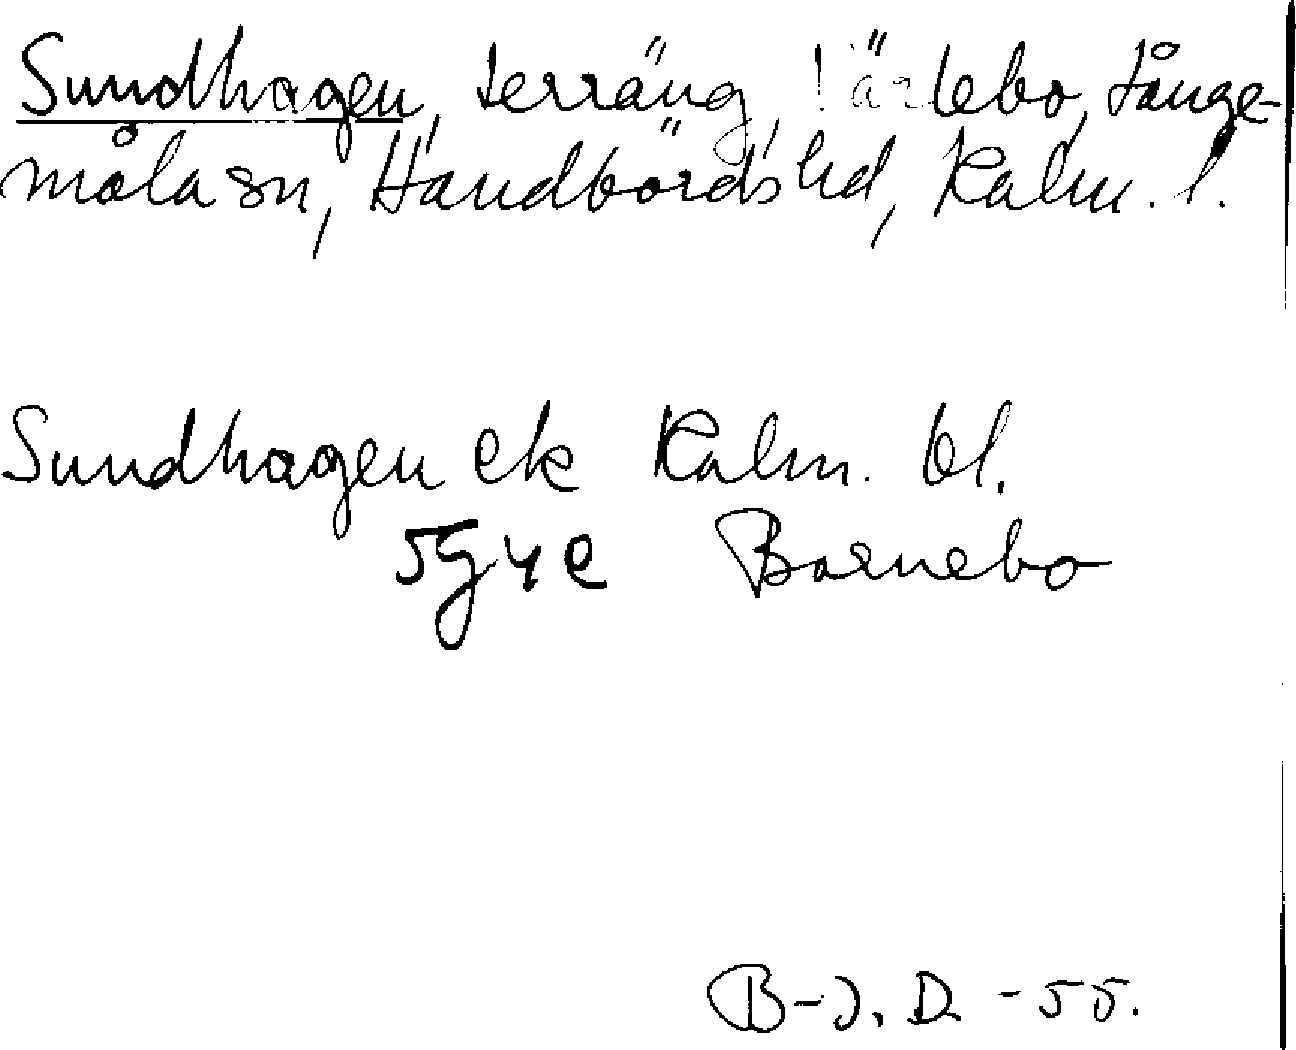 Sundhagen, terräng, lebo, Tånge-
måla sn, Handbörds hd, Kalm. l.
Sundhagen ek Kalm. bl.
5G4e Barnebo
B-J. D. -55.